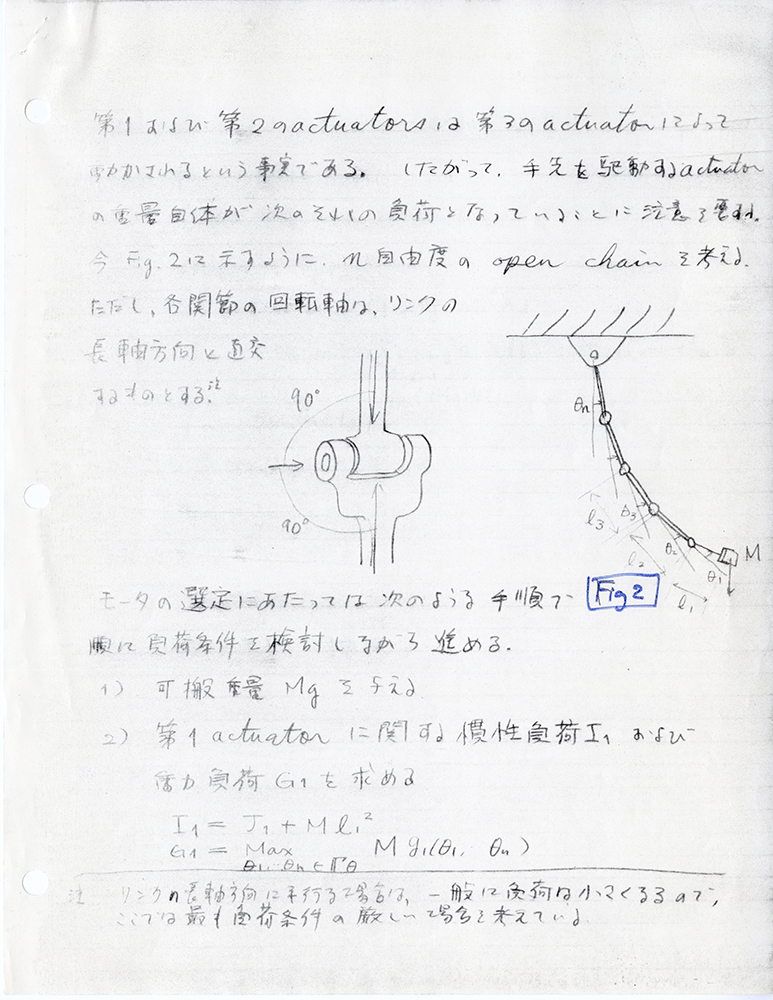 第1および第2のactuatorsは第3のactuatorによって
動かされるという事実である。したがって、手先を駆動するactuator
の重量自体が次のそれの負荷となっていることに注意を要する。
今Fig.2に示すように、n自由度のopen chainを考える。
ただし、各関節の回転軸は、リンクの
長軸方向と直交
するものとする。注
90°
90°
θn
θ3
l3
θ2
l2
θ1
l1
M
Fig 2
モータの選定にあたっては次のような手順で
順に負荷条件を検討しながら進める。
1) 可搬重量Mgを与える
2) 第1 actuatorに関する慣性負荷I1 および
重力負荷G1を求める
I1 = J1 + M l1²
G1 = Max M g1(θ1, θn)
θ1…θn
注 リンクの長軸方向に平行な場合は、一般に負荷は小さくなるので、
ここでは最も負荷条件の厳しい場合を考えている。